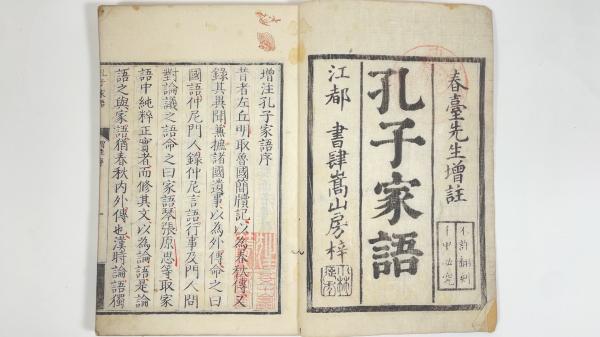 春臺先生增註
不許翻刻
千里必究
孔子家語
江都 書肆嵩山房梓
增注孔子家語序
昔者左丘明取魯國簡牘記以為春秋傳又
錄其異聞兼摭諸國遺事以為外傳命之曰
國語仲尼門人錄仲尼言語行事及門人問
對論議之語命之曰家語琴張原思等取家
語中純粹正實者而修其文以為論語是論
語之與家語猶春秋內外傳也漢時論語獨